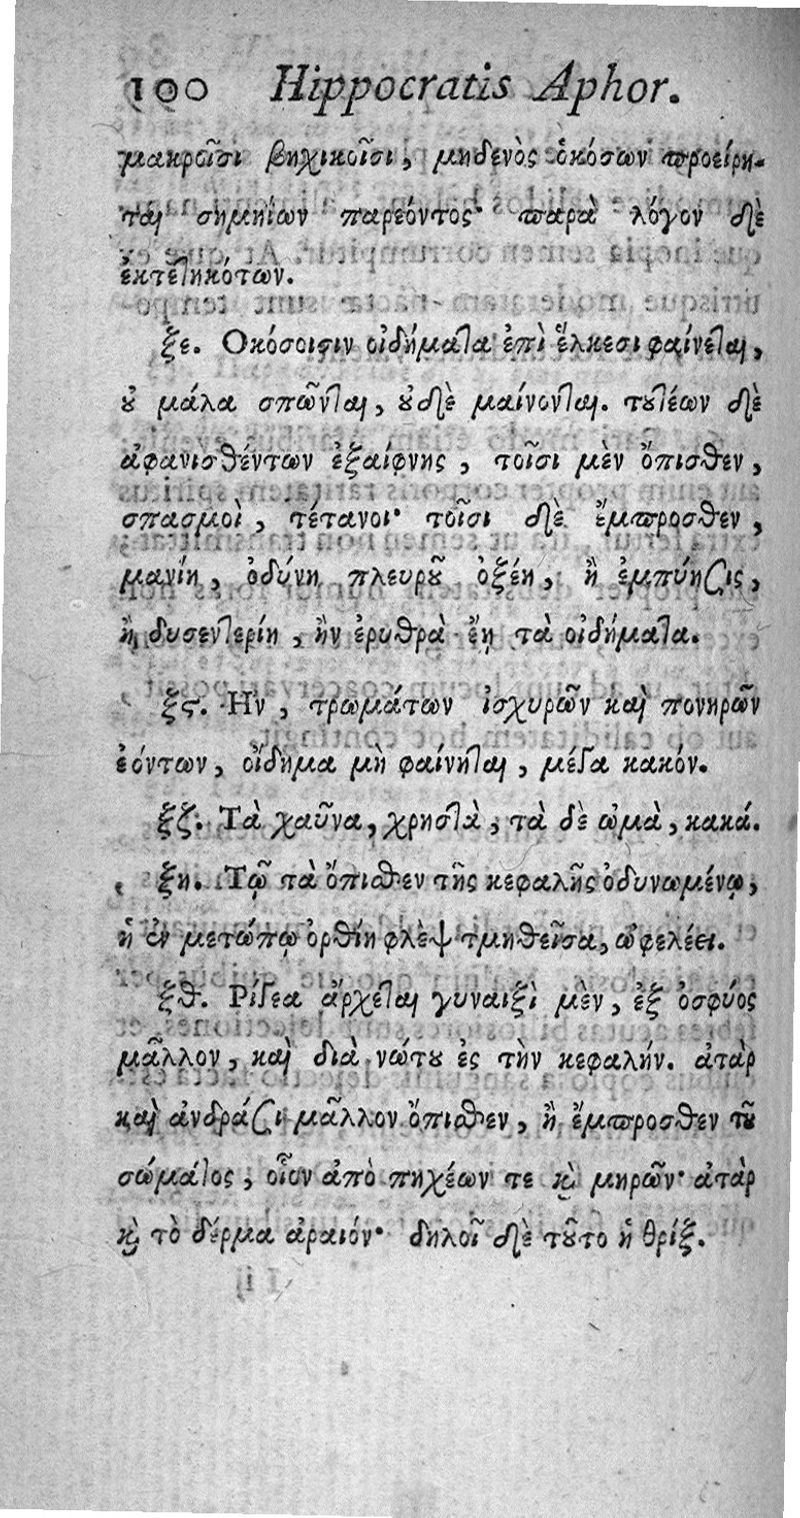 100 Hippocratis Aphor.
μακροῖσι βηχικοῖσι, μηδενὸς ὁκόσων προείρη-
ται σημηΐων παρεόντος· παρὰ λόγον δὲ
ἐκτετηκότων.
ξε. Οκόσοισιν οἰδήματα ἐπὶ ἕλκεσι φαίνεται,
οὐ μάλα σπῶνται, οὐδὲ μαίνονται. τουτέων δὲ
ἀφανισθέντων ἐξαίφνης, τοῖσι μὲν ὄπισθεν,
σπασμοὶ, τέτανοι· τοῖσι δὲ ἔμπροσθεν,
μανίη, ὀδύνη πλευροῦ ὀξέη, ἢ ἐμπύησις,
ἢ δυσεντερίη, ἢν ἐρυθρὰ ἔῃ τὰ οἰδήματα.
ξϛ. Ην, τρωμάτων ἰσχυρῶν καὶ πονηρῶν
ἐόντων, οἴδημα μὴ φαίνηται, μέγα κακόν.
ξζ. Τὰ χαῦνα, χρηστὰ, τὰ δὲ ὠμὰ, κακά.
ξη. Τῷ τὰ ὄπισθεν τῆς κεφαλῆς ὀδυνωμένῳ,
ἡ ἐν μετώπῳ ὀρθίη φλὲψ τμηθεῖσα, ὠφελέει.
ξθ. Ρίγεα ἄρχεται γυναιξὶ μὲν, ἐξ ὀσφύος
μᾶλλον, καὶ διὰ νώτου ἐς τὴν κεφαλήν. ἀτὰρ
καὶ ἀνδράσι μᾶλλον ὄπισθεν, ἢ ἔμπροσθεν τοῦ
σώματος, οἷον ἀπὸ πηχέων τε καὶ μηρῶν· ἀτὰρ
καὶ τὸ δέρμα ἀραιόν· δηλοῖ δὲ τοῦτο ἡ θρίξ.